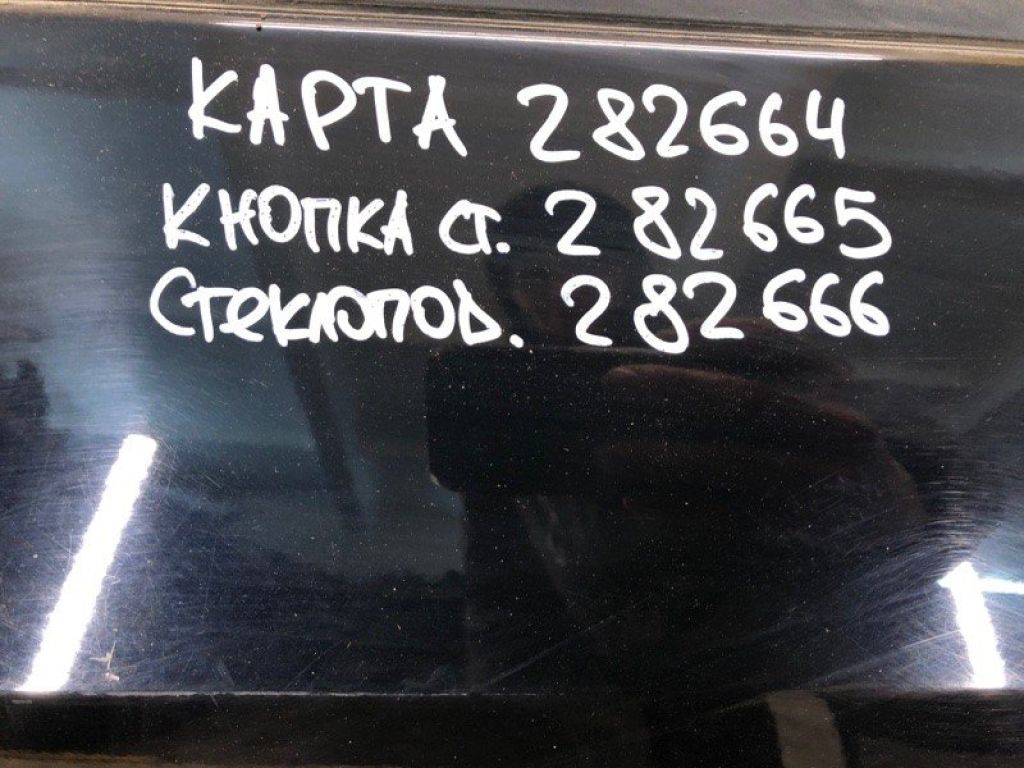 КАРТА 282664
КНОПКА СТ. 282665
СТЕКЛОПОД. 282666